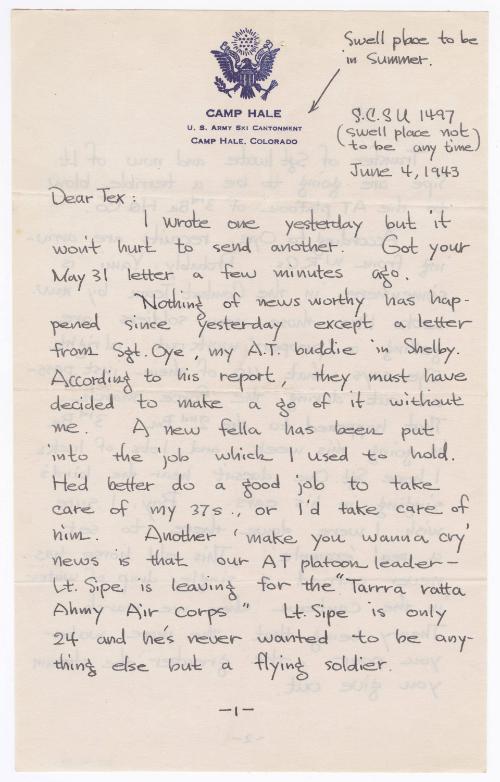 Swell place to be
in Summer.
CAMP HALE
U. S. ARMY SKI CANTONMENT
CAMP HALE, COLORADO
S.C.S U 1497
(swell place not
to be any time)
June 4, 1943
Dear Tex:
I wrote one yesterday but it
won't hurt to send another. Got your
May 31 letter a few minutes ago.
Nothing of news worthy has hap-
pened since yesterday except a letter
from Sgt. Oye, my A.T. buddie in Shelby.
According to his report, they must have
decided to make a go of it without
me. A new fella has been put
into the job which I used to hold.
He'd better do a good job to take
care of my 37s., or I'd take care of
him. Another 'make you wanna cry'
news is that our AT platoon leader-
Lt. Sipe is leaving for the "Tarrra ratta
Ahmy Air Corps" Lt. Sipe is only
24 and he's never wanted to be any-
thing else but a flying soldier.
-1-